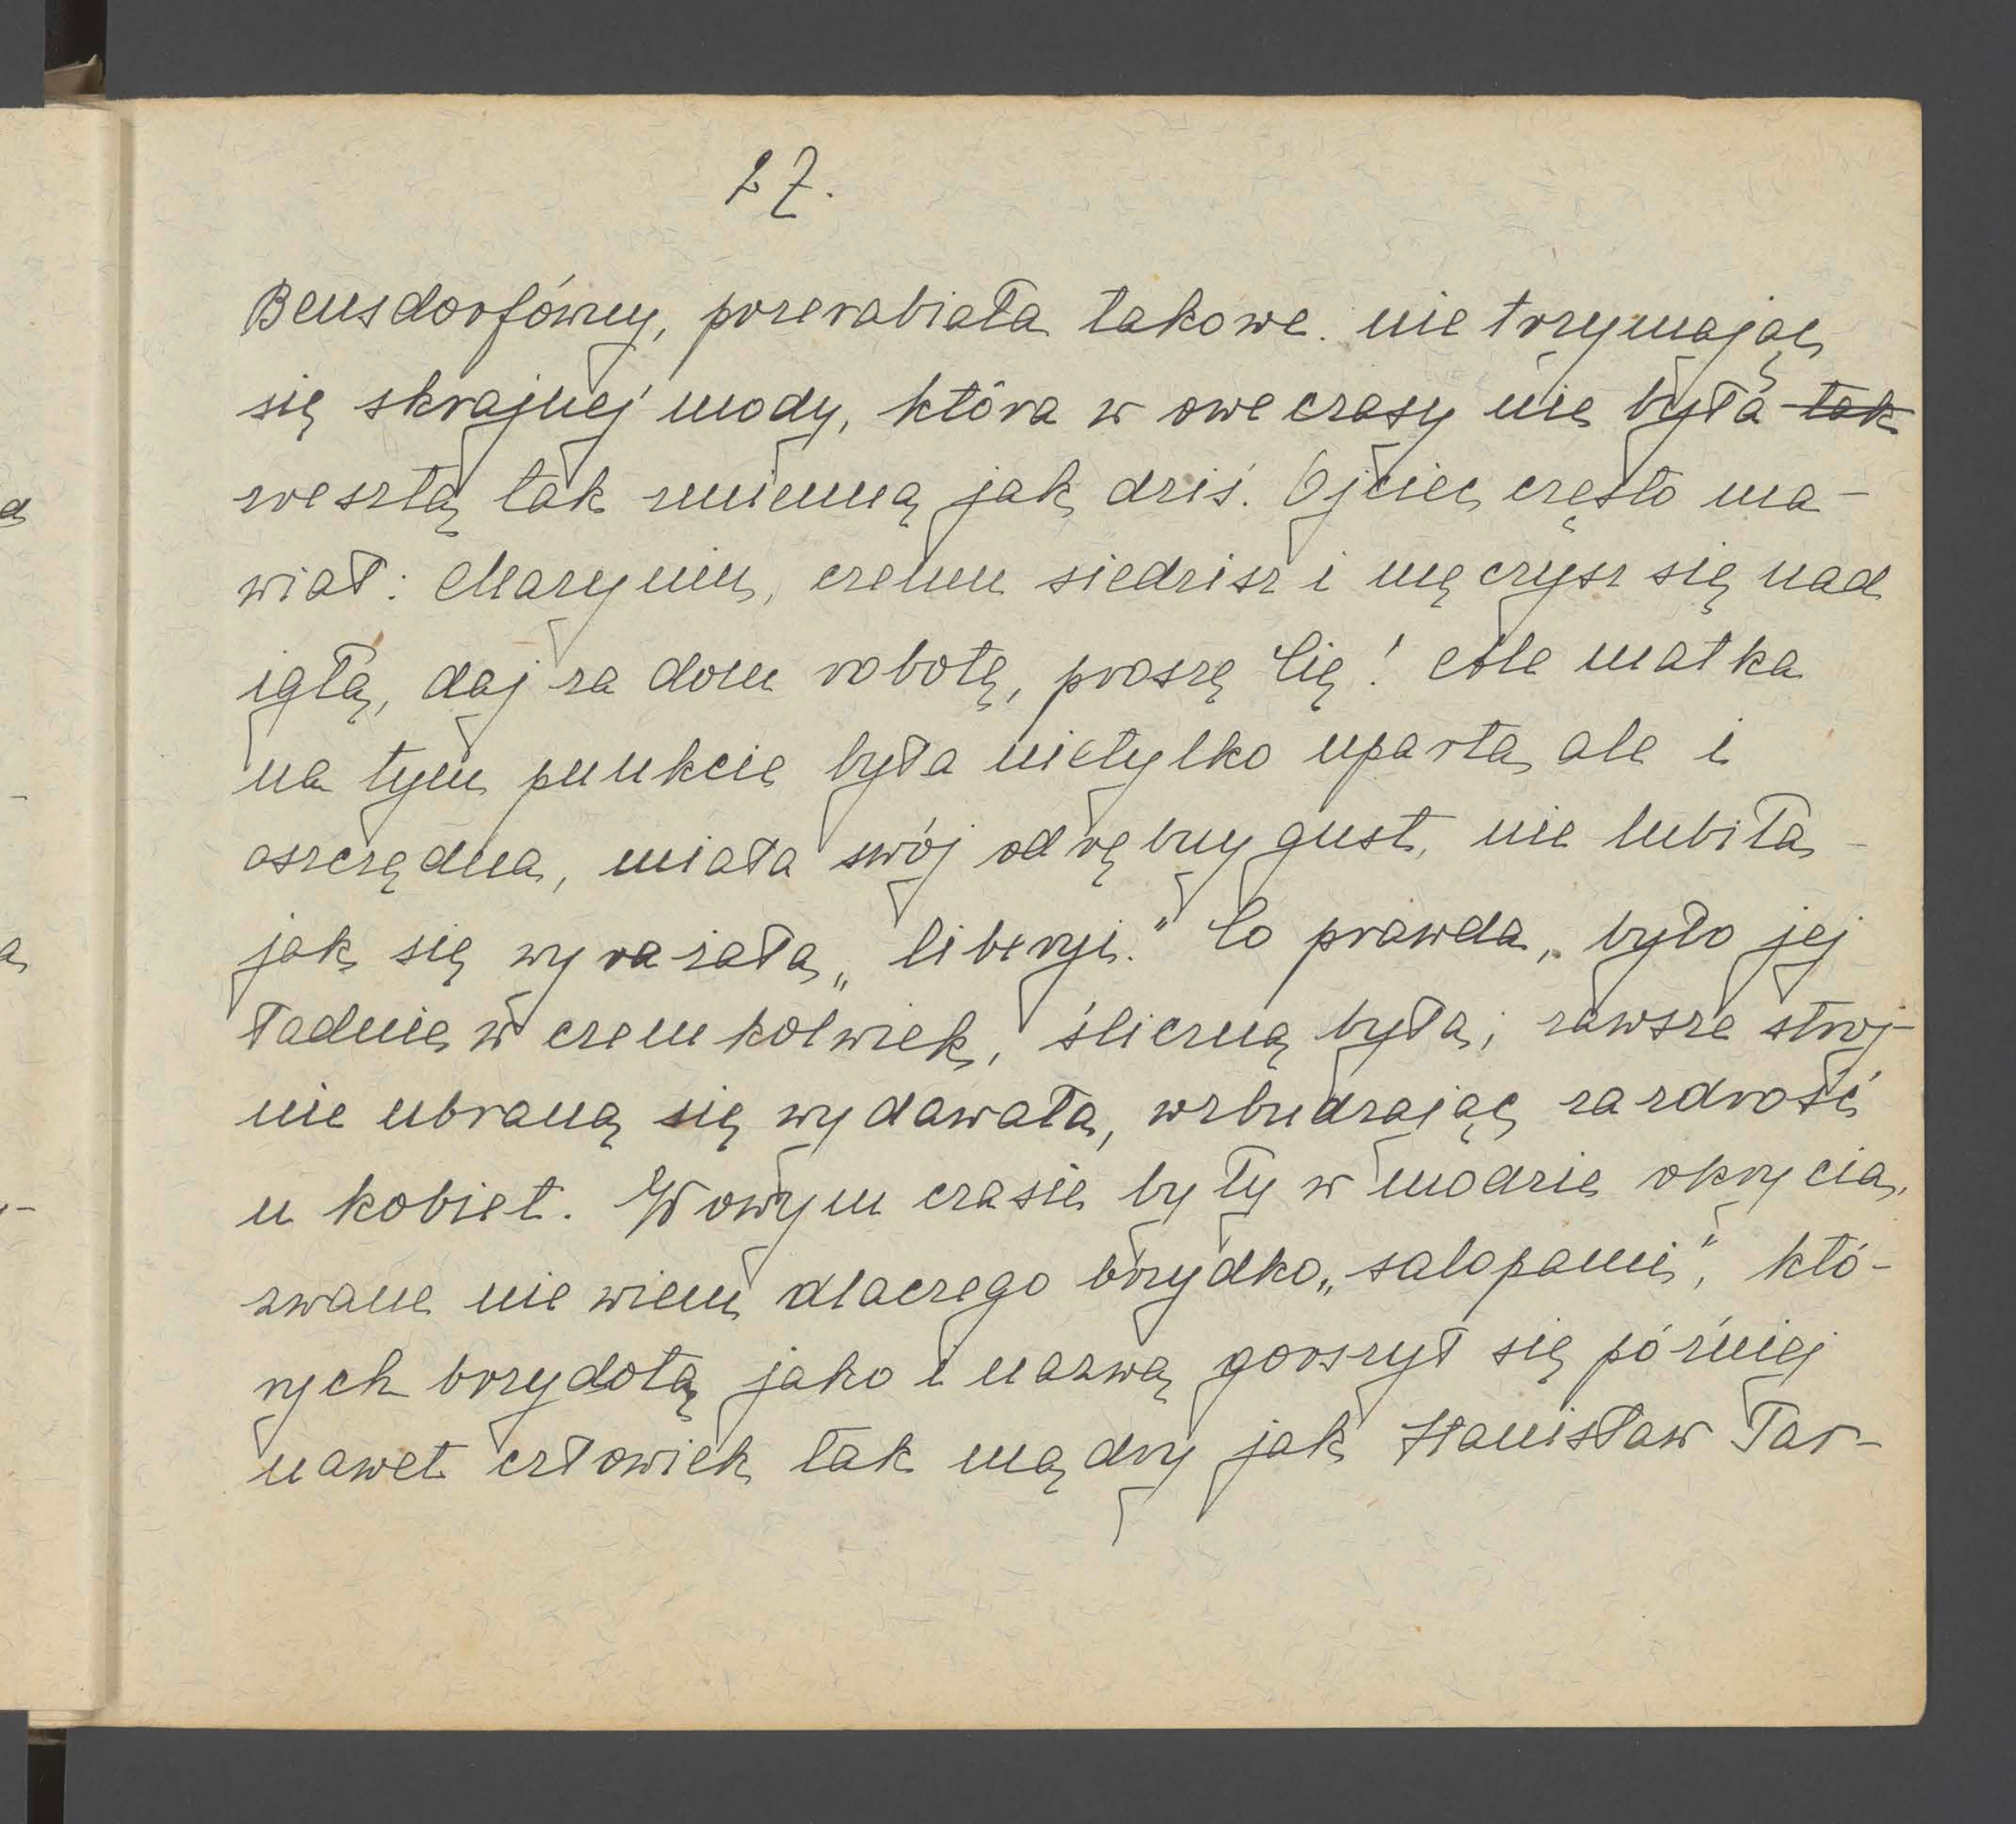 27.
Bensdorfówny, przerabiała takowe. nie trzymając
się skrajnej mody, która w owe czasy nie była tak
zresztą tak zmienną jak dziś. Ojciec często ma-
wiał: Maryniu, czemu siedzisz i męczysz się nad
igłą, daj za dom robotę, proszę Cię! Ale matka
na tym punkcie była nietylko uparta ale i
oszczędna, miała swój odrębny gust, nie lubiła -
jak się wyrażała „liberyi." Co prawda, było jej
ładnie w czemkolwiek, śliczną była; zawsze stroj-
nie ubraną się wydawała, wzbudzając zazdrość
u kobiet. W owym czasie były w modzie okrycia,
zwane nie wiem dlaczego brzydko „salopami", któ-
rych brzydotą jako i nazwą gorszył się później
nawet człowiek tak mądry jak Stanisław Tar-